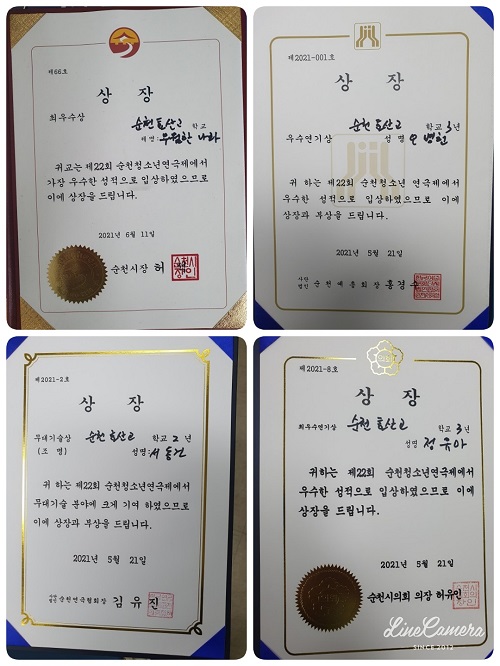 제66호
상 장
최우수상
순천효산고 학교
제명: 우월한 나라
귀교는 제22회 순천청소년연극제에서
가장 우수한 성적으로 입상하였으므로
이에 상장을 드립니다.
2021년 6월 11일
순천시장 허
제2021-001호
상 장
순천효산고 학교 3년
우수연기상 성명 오병헌
귀 하는 제22회 순천청소년 연극제에서
우수한 성적으로 입상하였으므로 이에
상장과 부상을 드립니다.
2021년 5월 21일
사단법인 순천예총회장 홍경수
제2021-2호
상 장
무대기술상 순천효산고 학교 2년
(조 명) 성명: 서동건
귀 하는 제22회 순천청소년연극제에서
무대기술 분야에 크게 기여 하였으므로
이에 상장과 부상을 드립니다.
2021년 5월 21일
순천연극협회장 김유진
제2021-8호
상 장
최우수연기상 순천효산고 학교 3년
성명 정유아
귀하는 제22회 순천청소년연극제에서
우수한 성적으로 입상하였으므로 이에
상장을 드립니다.
2021년 5월 21일
순천시의회 의장 허유인
LineCamera
SINCE 2012